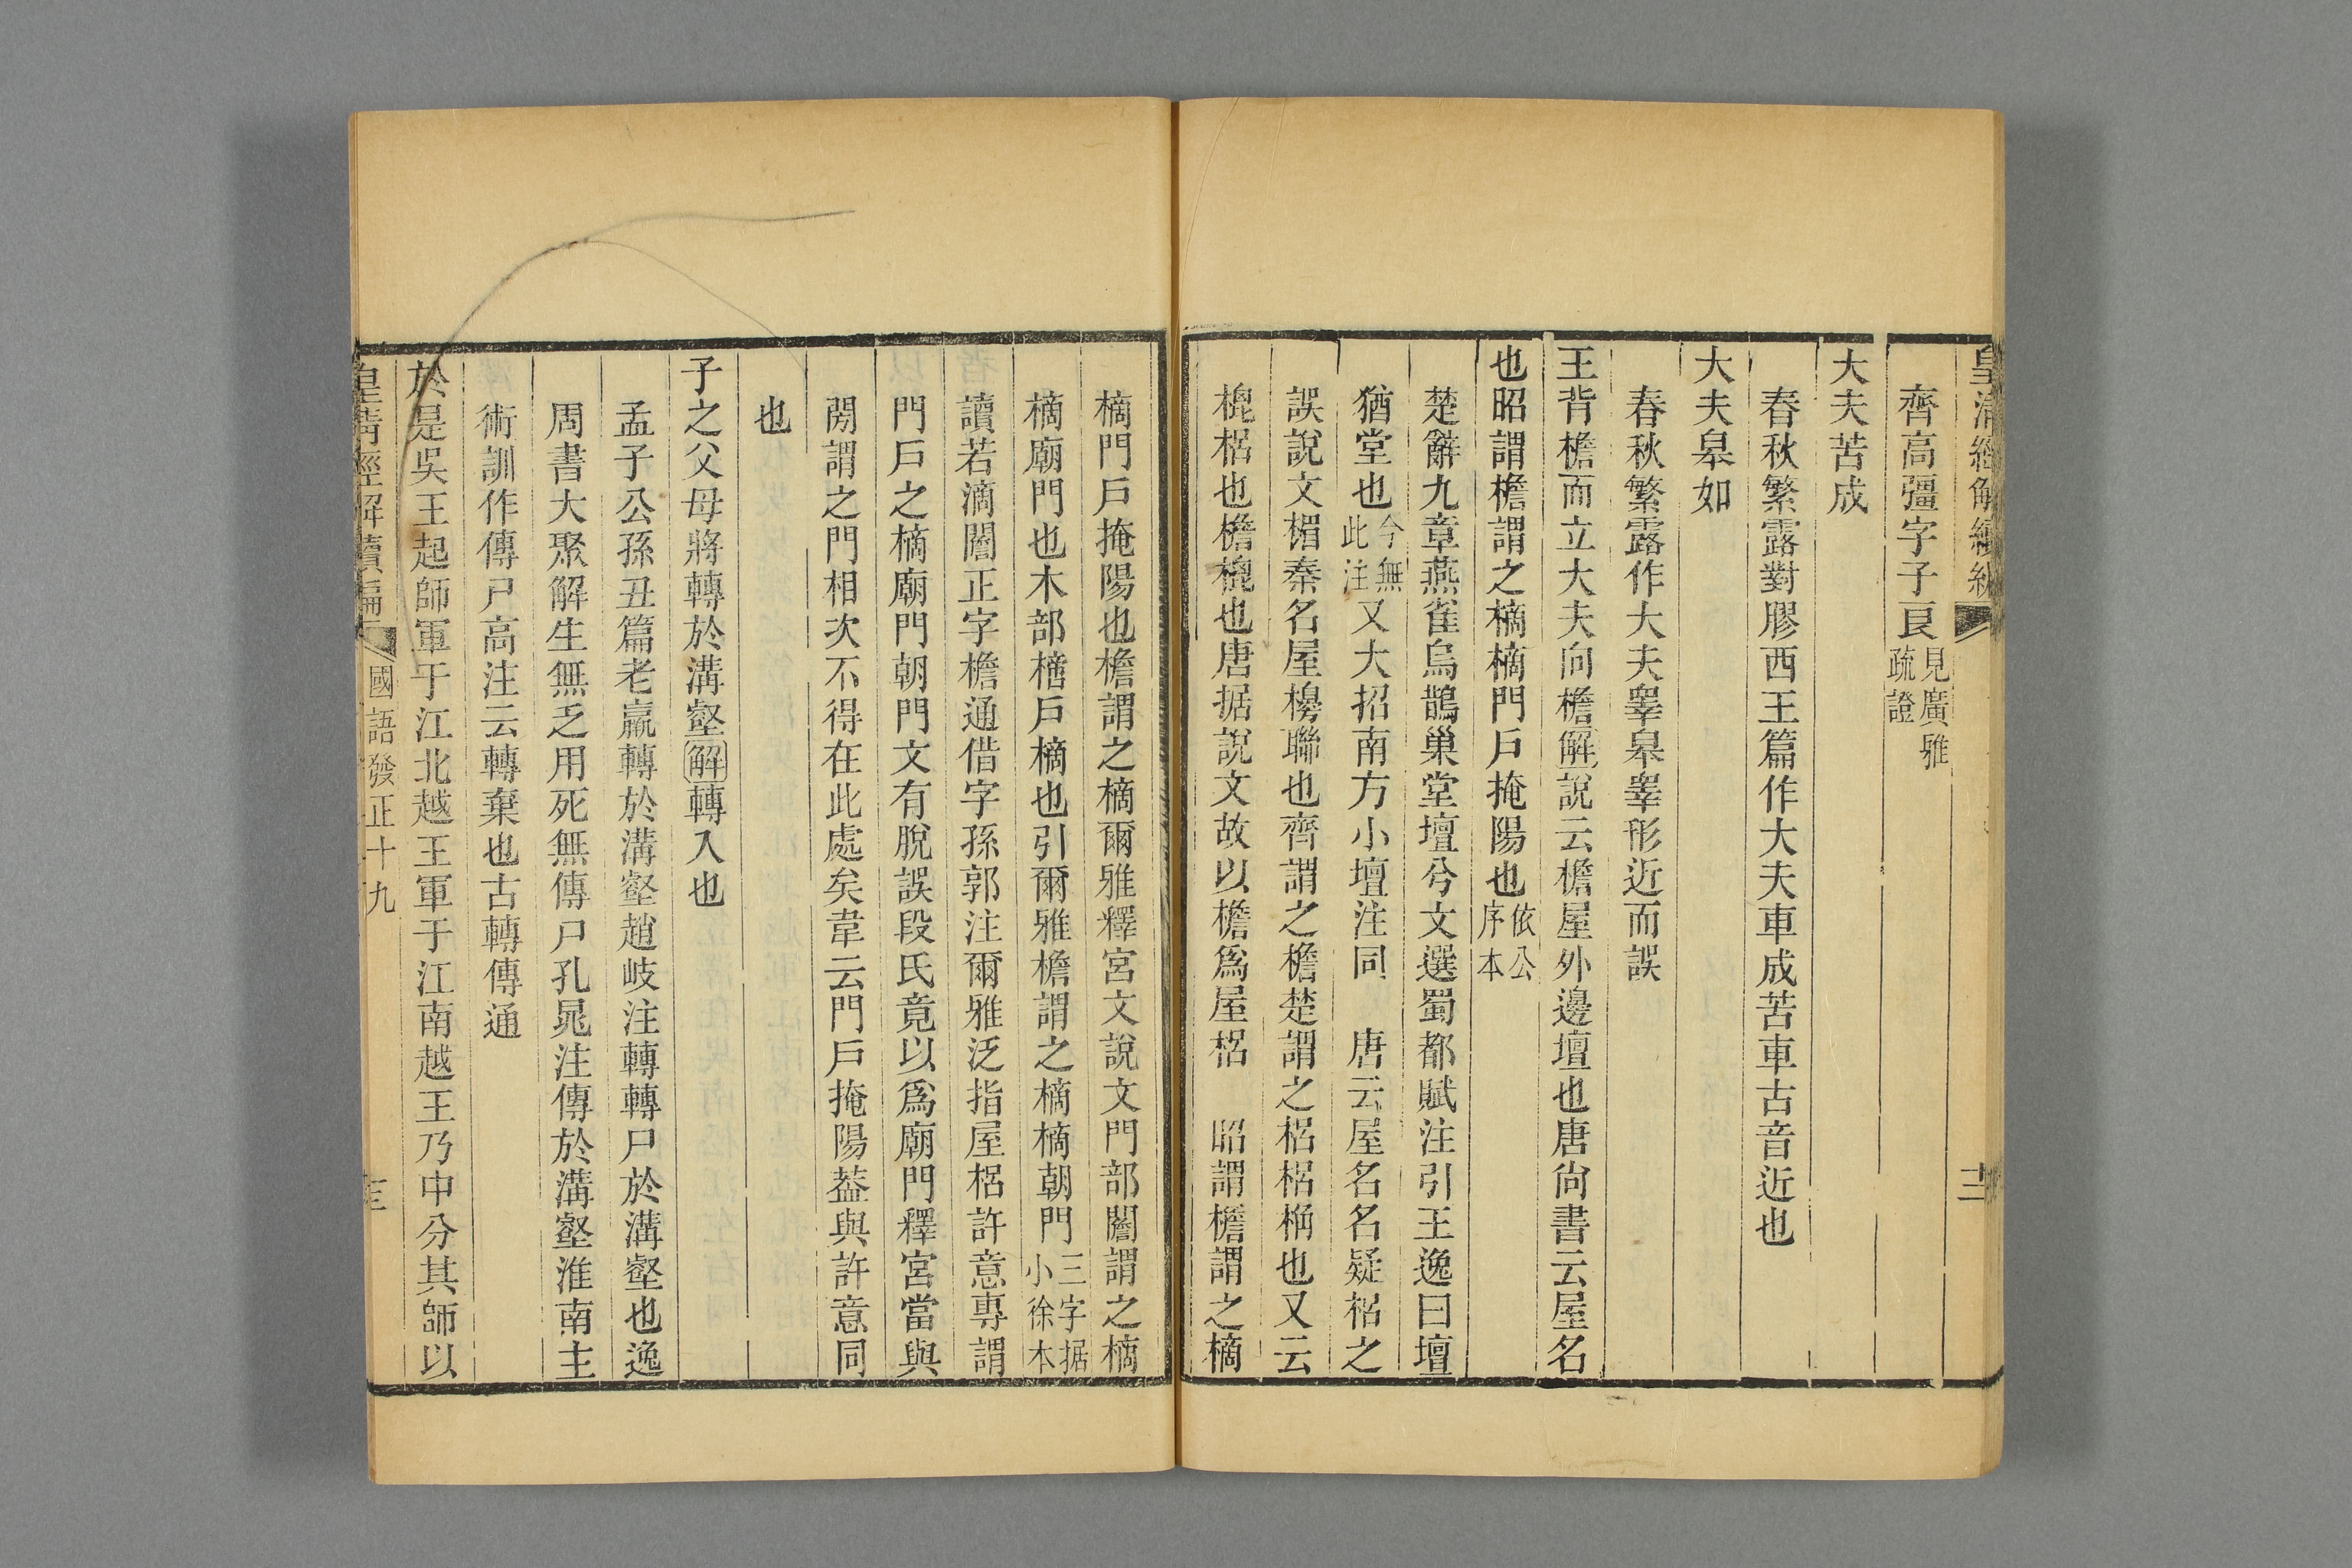 皇清經解續編
十二
齊高彊字子良見廣雅疏證
大夫苦成
春秋繁露對膠西王篇作大夫車成苦車古音近也
大夫皋如
春秋繁露作大夫睪皋睪形近而誤
王背檐而立大夫向檐解說云檐屋外邊壇也唐尚書云屋名
也昭謂檐謂之樀樀門戶掩陽也依公序本
楚辭九章燕雀烏鵲巢堂壇兮文選蜀都賦注引王逸曰壇
猶堂也今無此注又大招南方小壇注同 唐云屋名名疑梠之
誤說文楣秦名屋櫋聯也齊謂之檐楚謂之梠梠桷也又云
㮰梠也檐㮰也唐据說文故以檐爲屋梠 昭謂檐謂之樀
樀門戶掩陽也檐謂之樀爾雅釋宮文說文門部闇謂之樀
樀廟門也木部檐戶樀也引爾雅檐謂之樀樀朝門三字据小徐本
讀若滴闇正字檐通借字孫郭注爾雅泛指屋梠許意專謂
門戶之樀廟門朝門文有脫誤段氏竟以爲廟門釋宮當與
閍謂之門相次不得在此處矣韋云門戶掩陽葢與許意同
也
子之父母將轉於溝壑解轉入也
孟子公孫丑篇老羸轉於溝壑趙岐注轉轉尸於溝壑也逸
周書大聚解生無乏用死無傳尸孔晁注傳於溝壑淮南主
術訓作傳尸高注云轉棄也古轉傳通
於是吳王起師軍于江北越王軍于江南越王乃中分其師以
皇清經解續編 國語發正十九